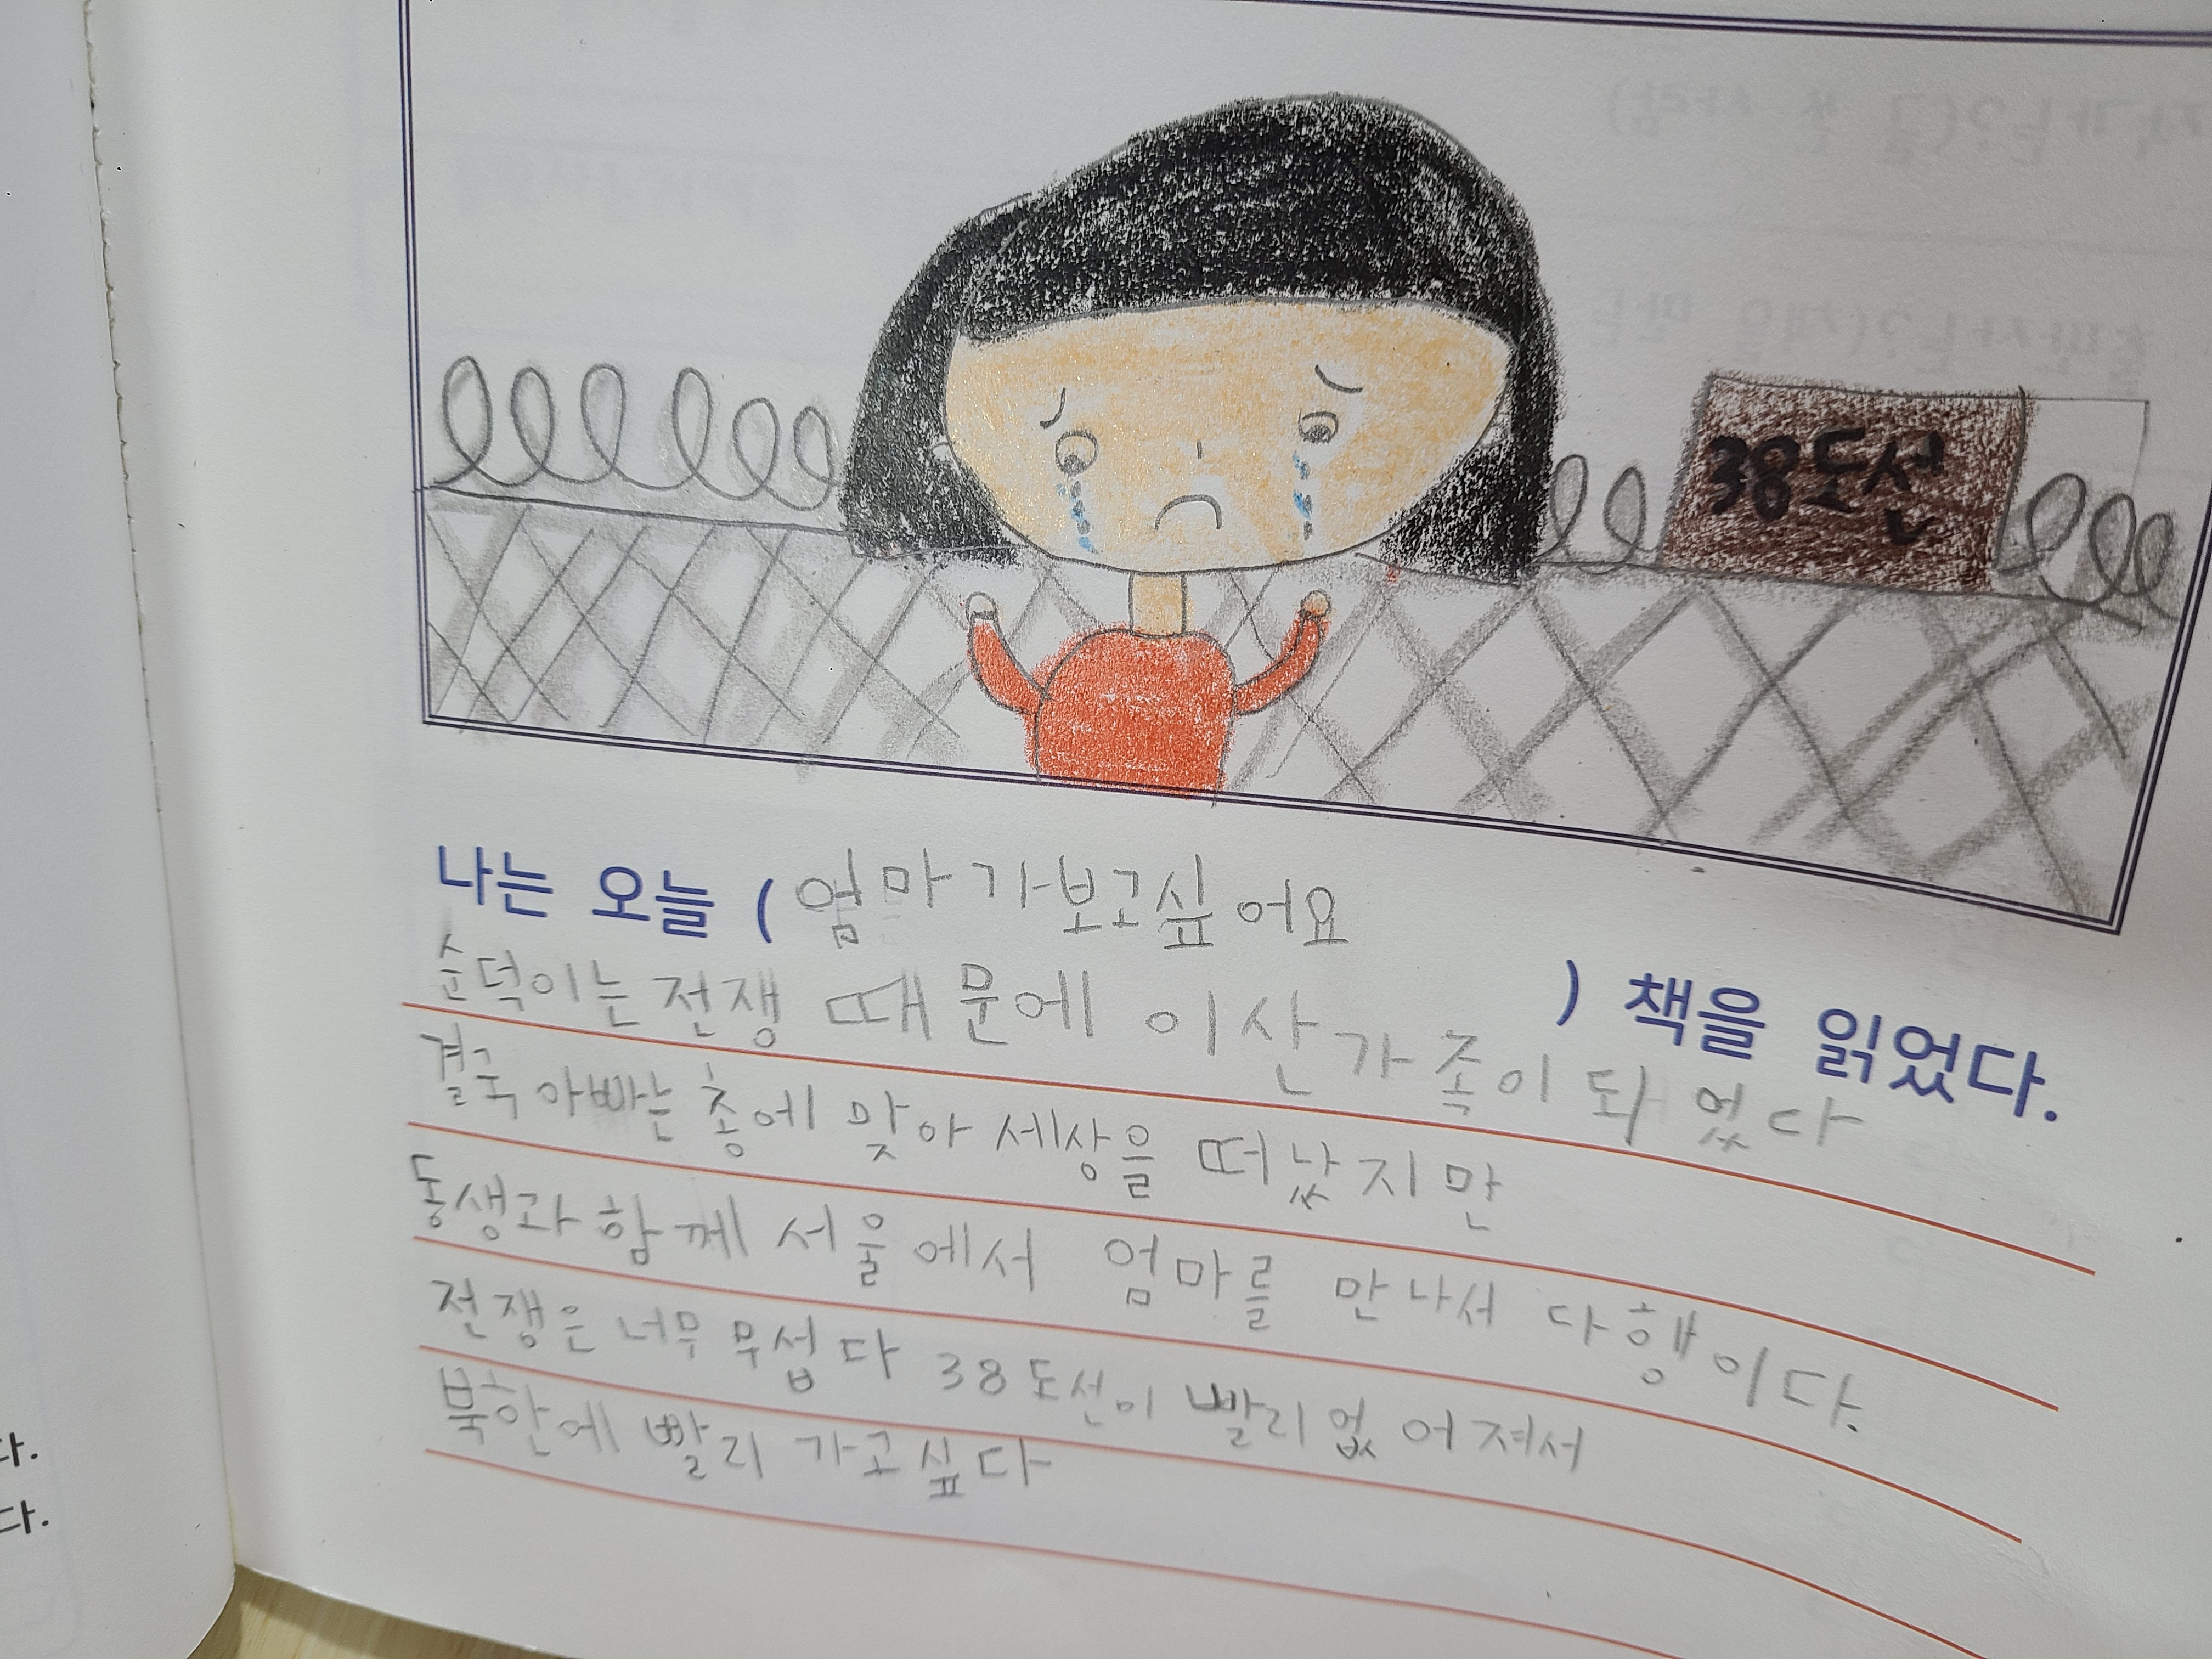 38도선
나는 오늘 ( 엄마가보고싶어요 ) 책을 읽었다.
순덕이는 전쟁 때문에 이산가족이 돠었다
결국 아빠는 총에 맞아 세상을 떠났지만
동생과 함께 서울에서 엄마를 만나서 다행이다.
전쟁은 너무 무섭다 38도선이 빨리 없어져서
북한에 빨리 가고싶다
다.
다.